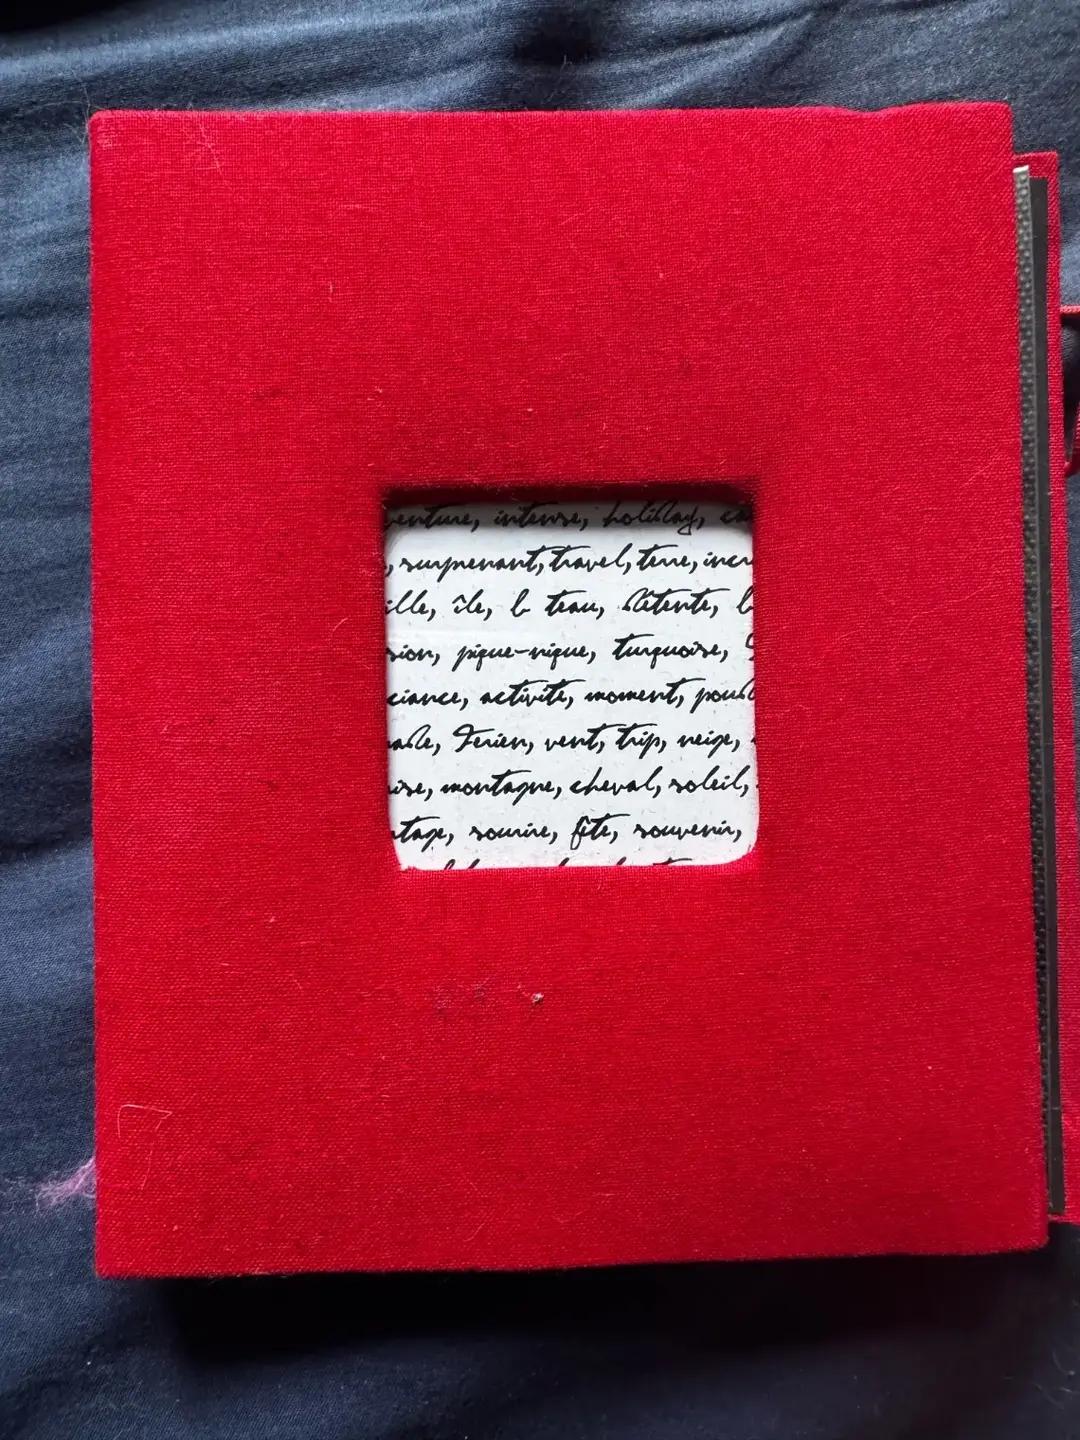 venture, intense, holiday, ca
, surprenant, travel, terre, incr
ille, île, bateau, détente, b
sion, pique-nique, turquoise,
ciance, activité, moment, poud
ade, dériver, vent, trip, neige,
ise, montagne, cheval, soleil,
ntage, sourire, fête, souvenir,